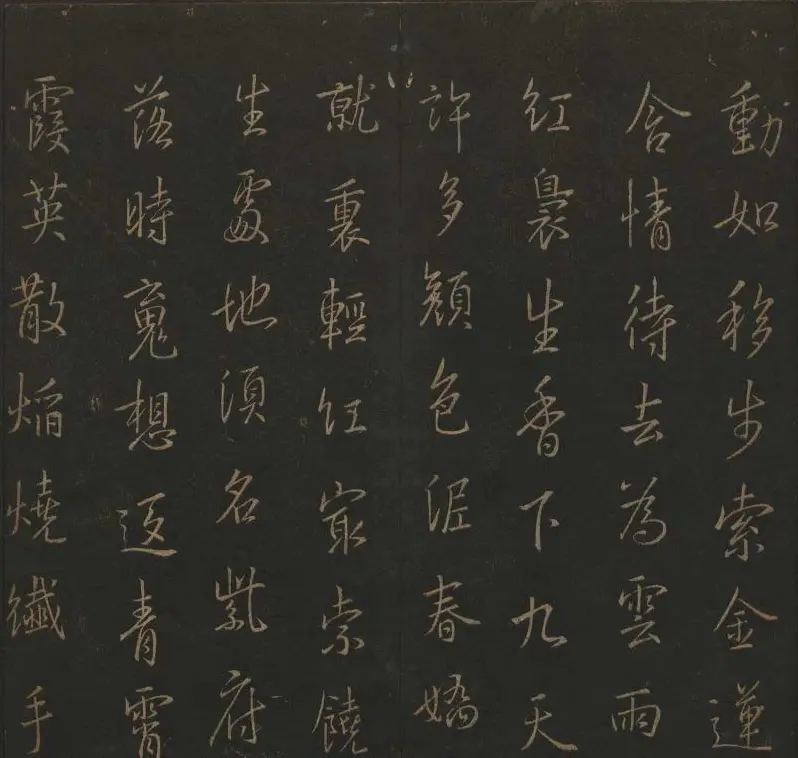 動如移步索金蓮
含情待去為雲雨
紅裊生香下九天
許多顏色泥春嬌
就裏輕紅㝡索饒
生處地須名紫府
落時魂想返青霄
霞英散焰燒纖手